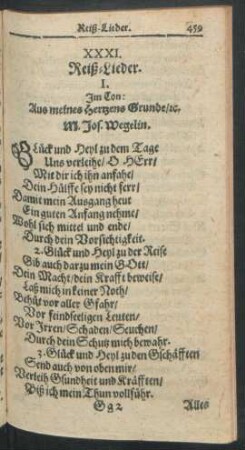 Reiß-Lieder. 459
XXXI.
Reiß-Lieder.
I.
Im Ton:
Aus meines Hertzens Grunde/ꝛc.
M. Jos. Wegelin.
GLück und Heyl zu dem Tage
Uns verleihe/ O HErr/
Mit dir ich ihn anfahe/
Dein Hülffe sey nicht ferr/
Damit mein Ausgang heut
Ein guten Anfang nehme/
Wohl sich mittel und ende/
Durch dein Vorsichtigkeit.
2. Glück und Heyl zu der Reise
Gib auch darzu mein GOtt/
Dein Macht/ dein Krafft beweise/
Laß mich in keiner Noth/
Behüt vor aller Gfahr/
Vor feindseeligen Leuten/
Vor Irren/ Schaden/ Seuchen/
Durch dein Schutz mich bewahr.
3. Glück und Heyl zu den Gschäfften
Send auch von oben mir/
Verleih Gsundheit und Kräfften/
Diß ich mein Thun vollführ.
Gg 2 Alles